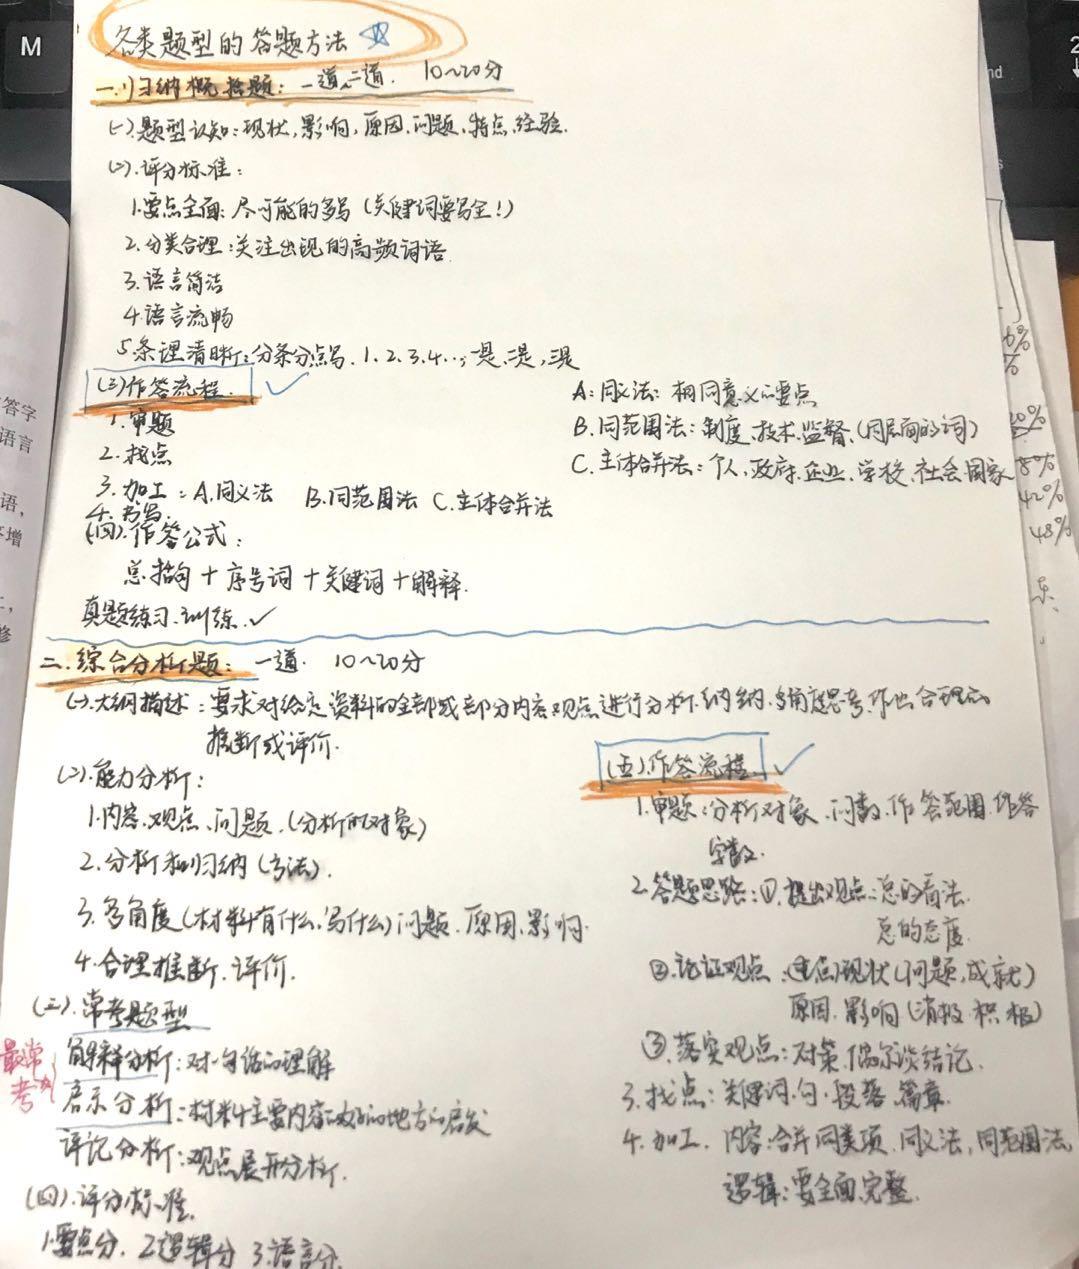 M
2
nd
s
各类题型的答题方法
一.归纳概括题：一道、二道. 10~20分
(一).题型认知：现状，影响，原因.问题、特点.经验.
(二).评分标准：
1.要点全面：尽可能的多写（关键词要写全！）
2.分类合理：关注出现的高频词语.
3.语言简洁
4.语言流畅
5.条理清晰：分条分点写. 1、2、3、4...；一是、二是，三是
(三)作答流程.
1.审题
2.找点
3.加工：A.同义法 B.同范围法 C.主体合并法
4.书写.
A：同义法：相同意义的要点
B.同范围法：制度、技术.监督、（同层面的词）
C.主体合并法：个人、政府、企业、学校、社会、国家
(四).作答公式：
总括句+序号词+关键词+解释.
真题练习.训练.✓
二.综合分析题：一道. 10~20分
(一).大纲描述：要求对给定资料的全部或部分内容、观点进行分析、归纳.多角度思考.作出合理的
推断或评价.
(二).能力分析：
1.内容、观点、问题.（分析的对象）
2.分析和归纳（方法）.
3.多角度（材料有什么.写什么）问题、原因、影响.
4.合理推断、评价.
(三).常考题型
最常考
解释分析：对一句话的理解
启示分析：材料主要内容的好的地方的启发
评论分析：观点展开分析.
(四).评分标准.
1.要点分. 2.逻辑分 3.语言分.
(五).作答流程.
1.审题：分析对象、问数.作答范围.作答
字数.
2.答题思路：①.提出观点：总的看法.
总的态度.
②.论证观点：（重点）现状（问题，成就）
原因.影响（消极.积极）
③.落实观点：对策、偶尔谈结论.
3.找点：关键词.句.段落、篇章.
4.加工. 内容：合并同类项.同义法，同范围法
逻辑：要全面、完整.
答字
语言
语，
增
修
6%
%
20%
8%
42%
48%